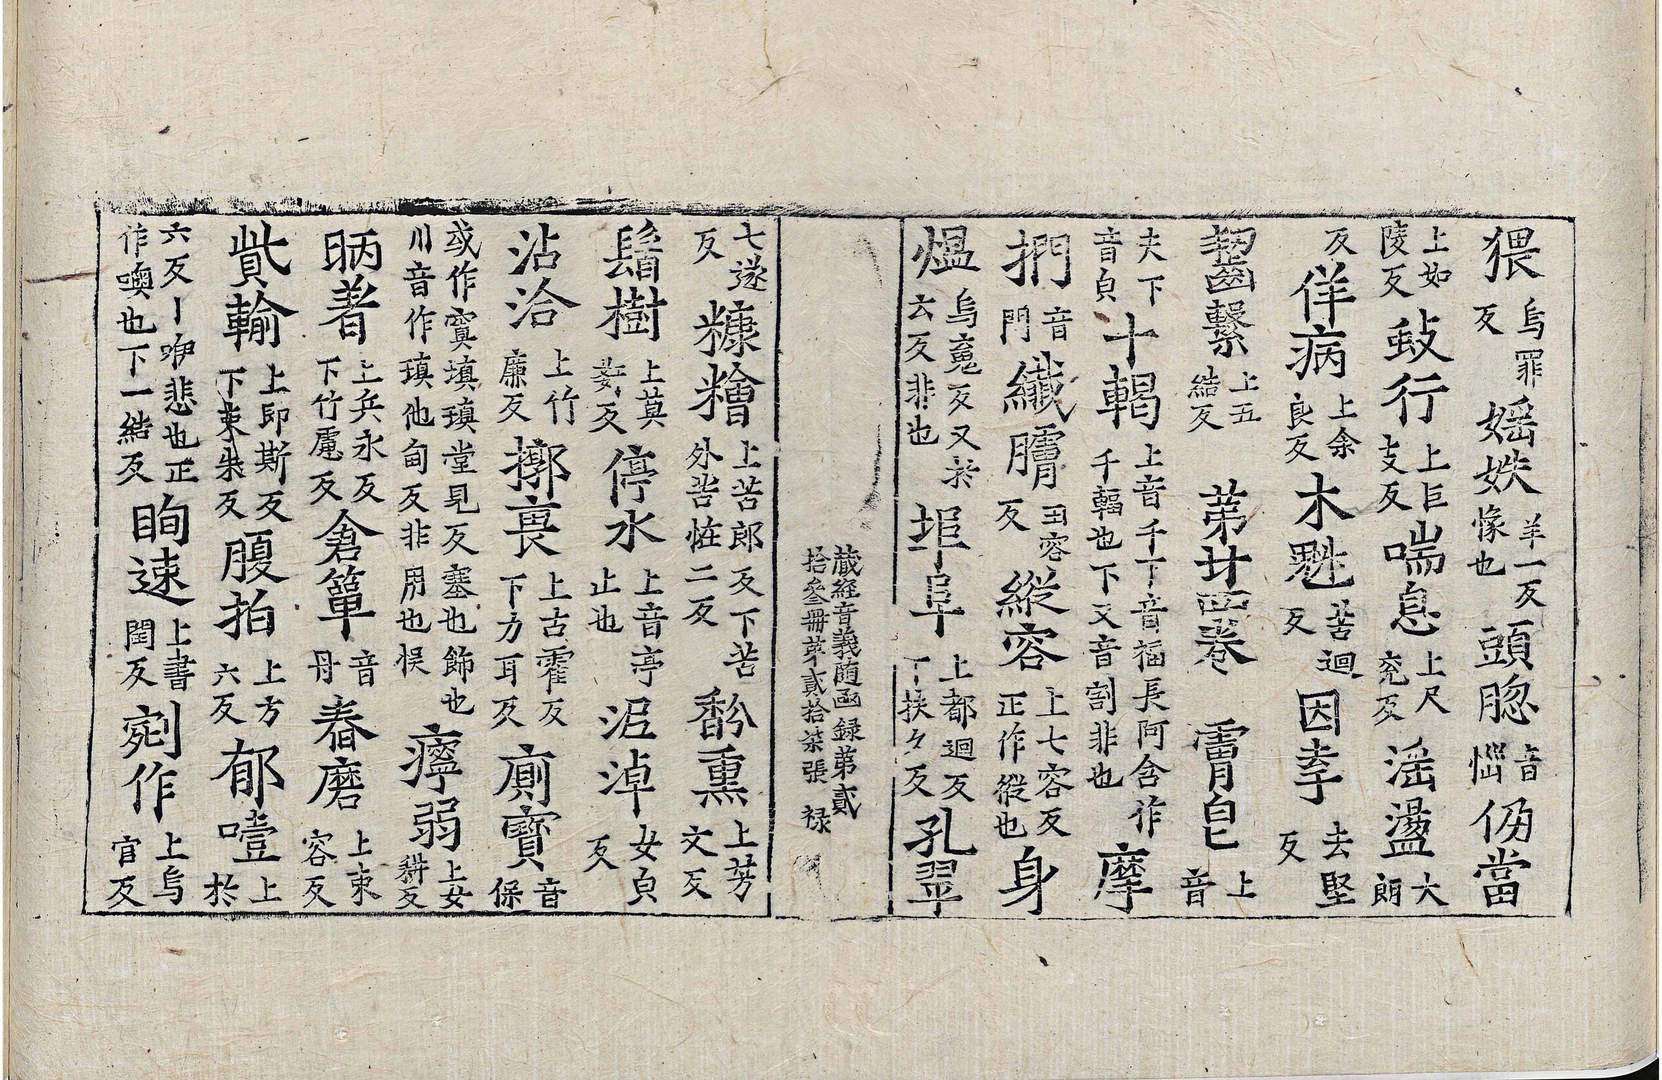 猥烏罪反媱妷羊一反像也頭𦛁音惱仍當
上如陵反蚑行上巨支反喘息上尺兖反滛盪大朗
反佯病上余良反木魁苦迴反因孝去堅反
齧繫上五結反第廿四卷霄皀上音
夫下音貞十輞上音千下音福長阿含作千輻也下又音割非也摩
捫音門纎𦟛丑容反縱容上七容反正作從也身
熅烏㝹反又於云反非也埠阜上都迴反下扶久反孔翠
藏經音義随函録第貳
拾叄冊第貳拾柒張 禄
七遂反糠糩上苦郎反下苦外苦恠二反馚熏上芳文反
鬍樹上莫𡝭反停水上音亭止也泥淖女皃反
沾洽上竹廉反擲裹上古霍反下方耳反廁寶音保
或作寘填瑱堂見反塞也飾也川音作瑱他甸反非用也悮㝕弱上女耕反
昞著上兵永反下竹慮反倉簞音丹舂磨上束容反
貲輸上即斯反下束朱反腹拍上方六反郁噎上於
六反丨咿悲也正作噢也下一結反眴速上書閏反剜作上烏官反